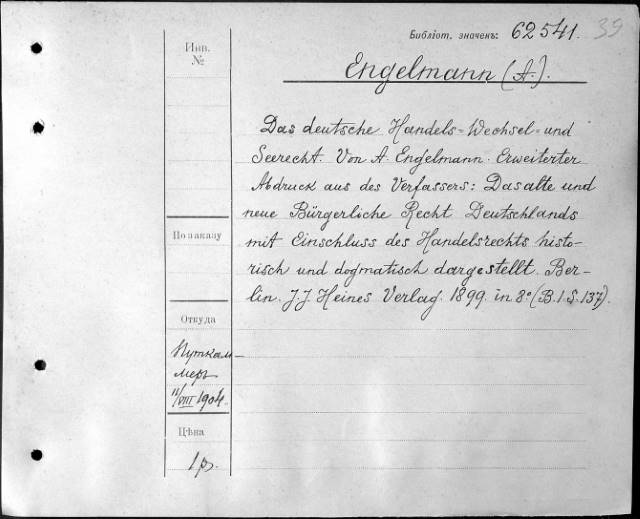 Библіот. значекъ: 62541. 39
Инв.
№
Engelmann (A.).
Das deutsche Handels-Wechsel- und
Seerecht. Von A. Engelmann. Erweiterter
Abdruck aus des Verfassers: Das alte und
neue Bürgerliche Recht Deutschlands
mit Einschluss des Handelsrechts histo-
risch und dogmatisch dargestellt. Ber-
lin. J.J. Heines Verlag. 1899. in 8º (B.1.S.137).
По заказу
Откуда
Путкам-
меръ
11/VIII 1904.
Цѣна
1 р.